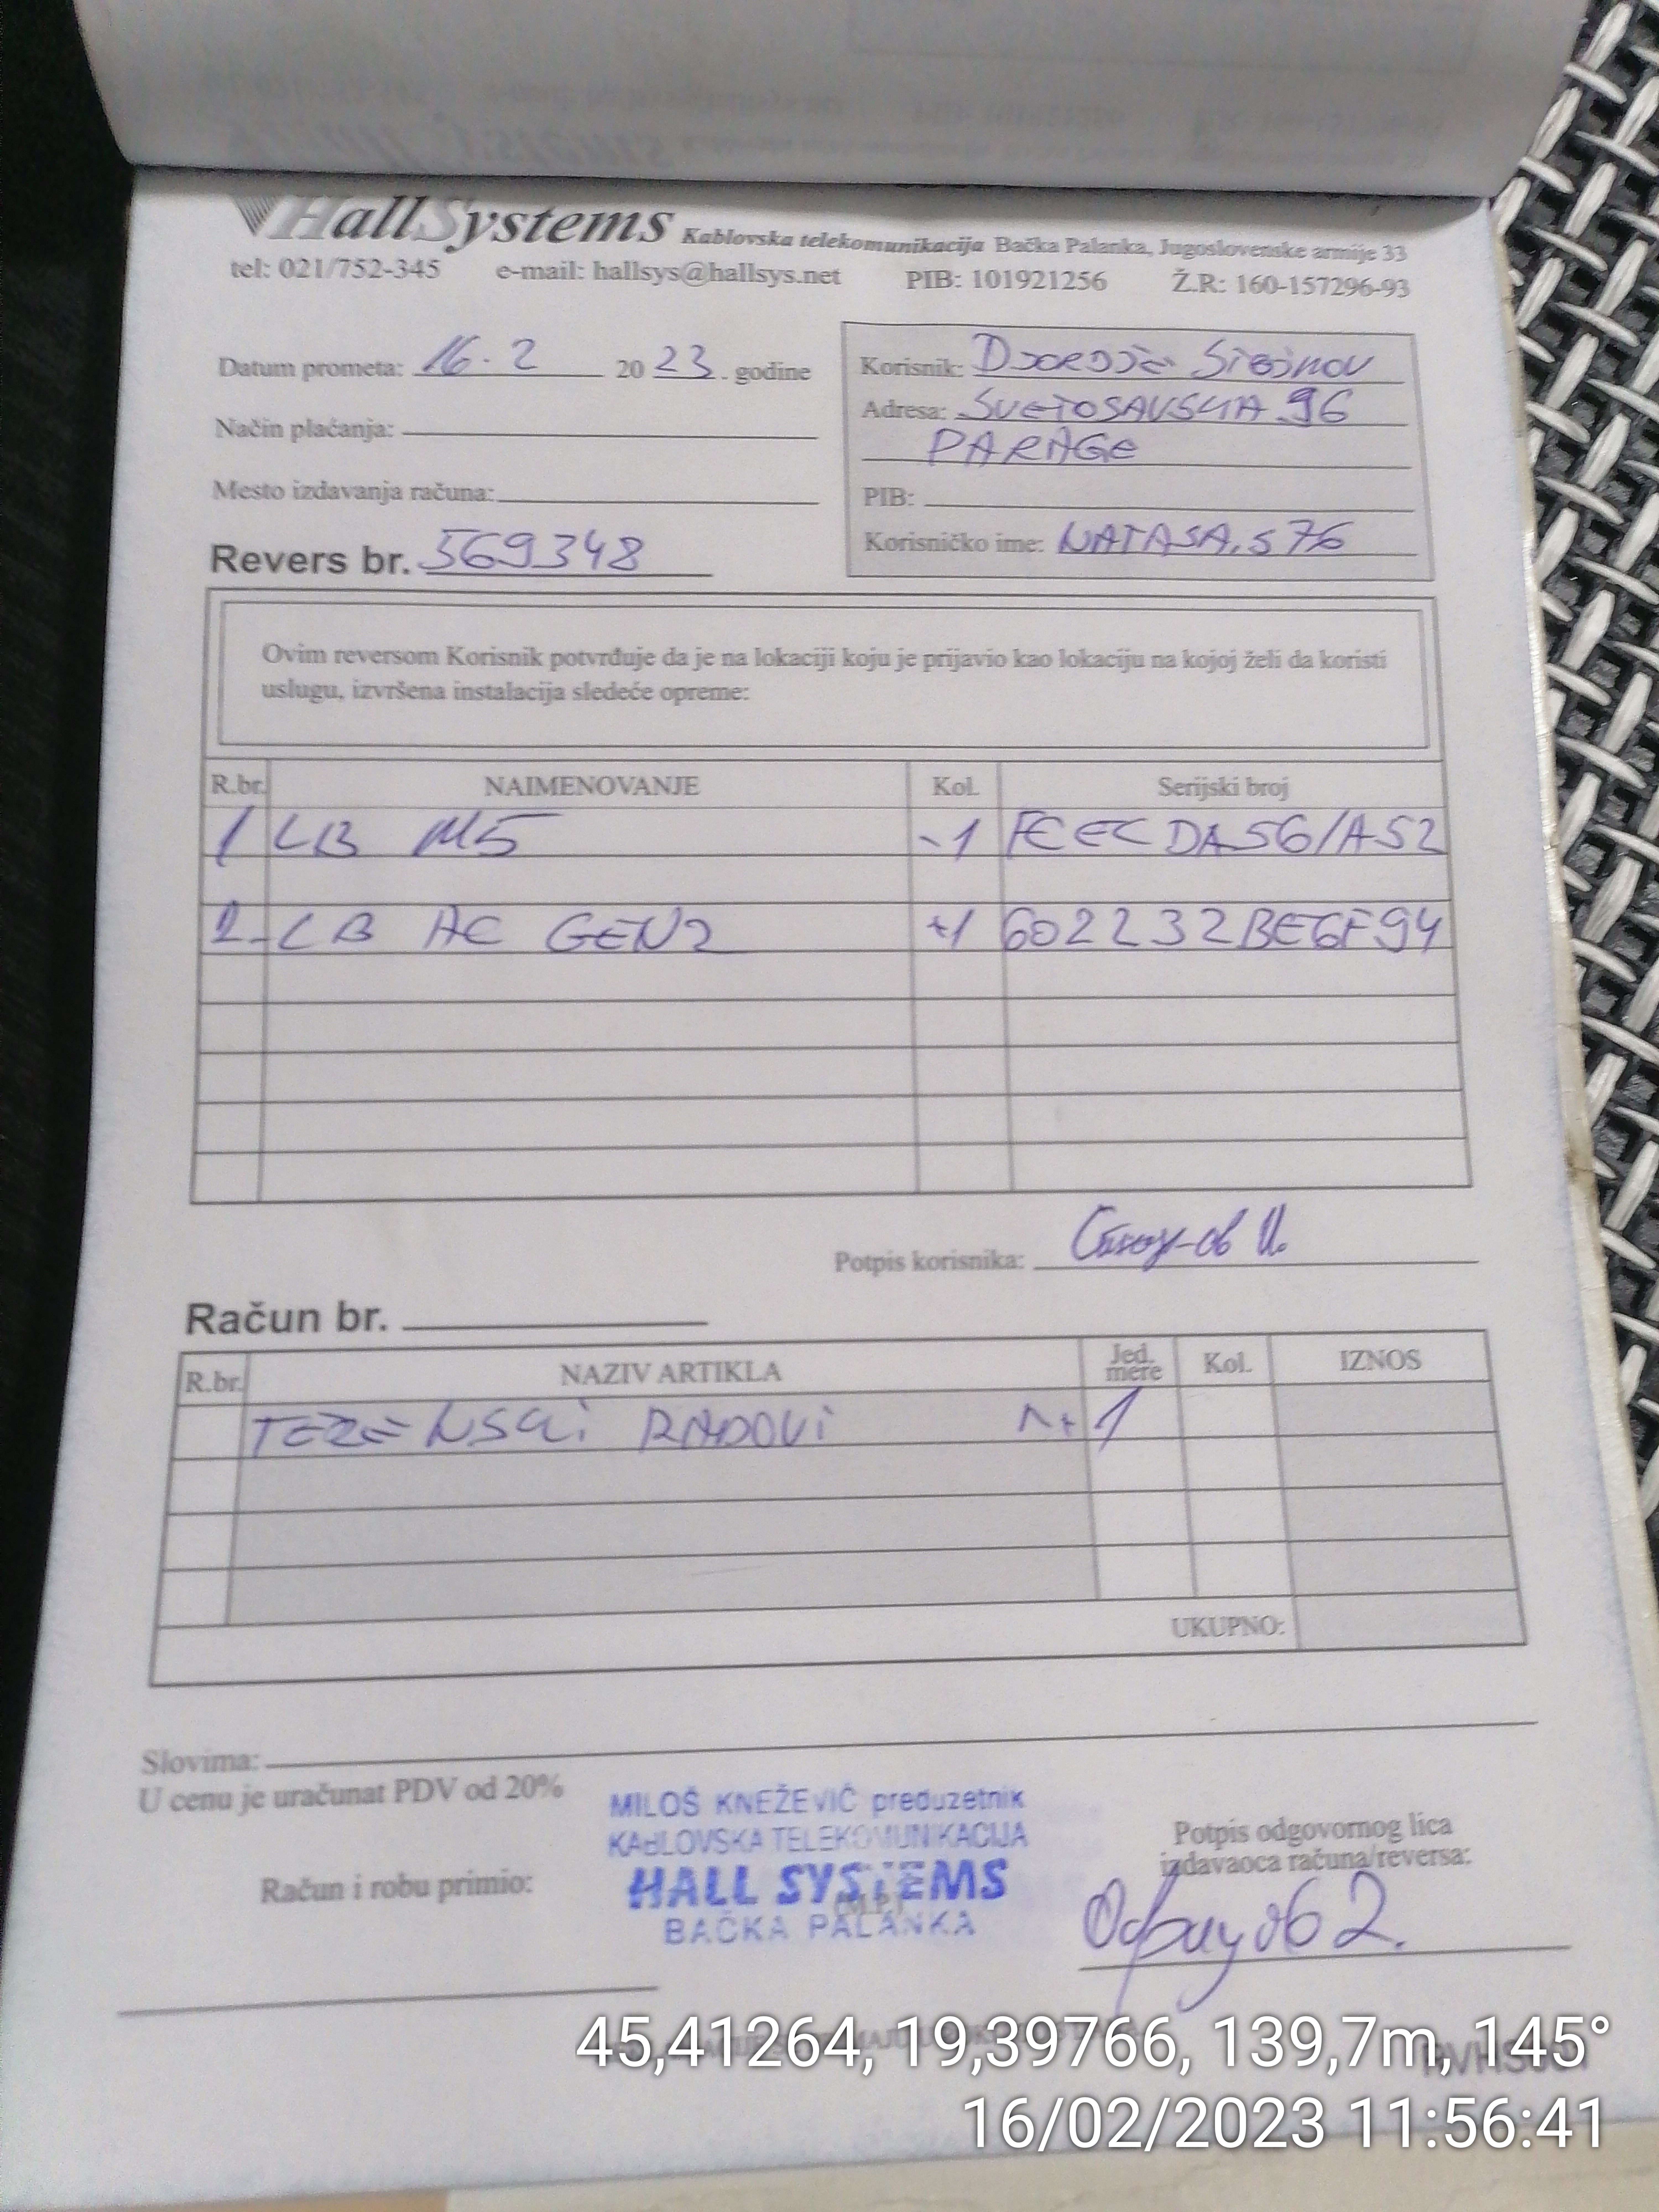 HallSystems Kablovska telekomunikacija Bačka Palanka, Jugoslovenske armije 33
tel: 021/752-345 e-mail: hallsys@hallsys.net PIB: 101921256 Ž.R: 160-157296-93
Datum prometa: 16.2 2023. godine
Način plaćanja:
Mesto izdavanja računa:
Revers br. 569348
Korisnik:
Adresa: SVETOSAVSKA 96
PARAGE
PIB:
Korisničko ime: NATASA.S76
Ovim reversom Korisnik potvrđuje da je na lokaciji koju je prijavio kao lokaciju na kojoj želi da koristi
uslugu, izvršena instalacija sledeće opreme:
R.br. NAIMENOVANJE Kol. Serijski broj
1 LB M5 -1 FCECDA56/A52
2. LB AC GEN2 +1 602232BE6F94
Potpis korisnika:
Račun br.
R.br. NAZIV ARTIKLA Jed. mere Kol. IZNOS
TERENSKI RADOVI 1
UKUPNO:
Slovima:
U cenu je uračunat PDV od 20%
MILOŠ KNEŽEVIĆ preduzetnik
KABLOVSKA TELEKOMUNIKACIJA
HALL SYSTEMS
(M.P.)
BAČKA PALANKA
Račun i robu primio:
Potpis odgovornog lica
izdavaoca računa/reversa:
45,41264, 19,39766, 139,7m, 145°
16/02/2023 11:56:41